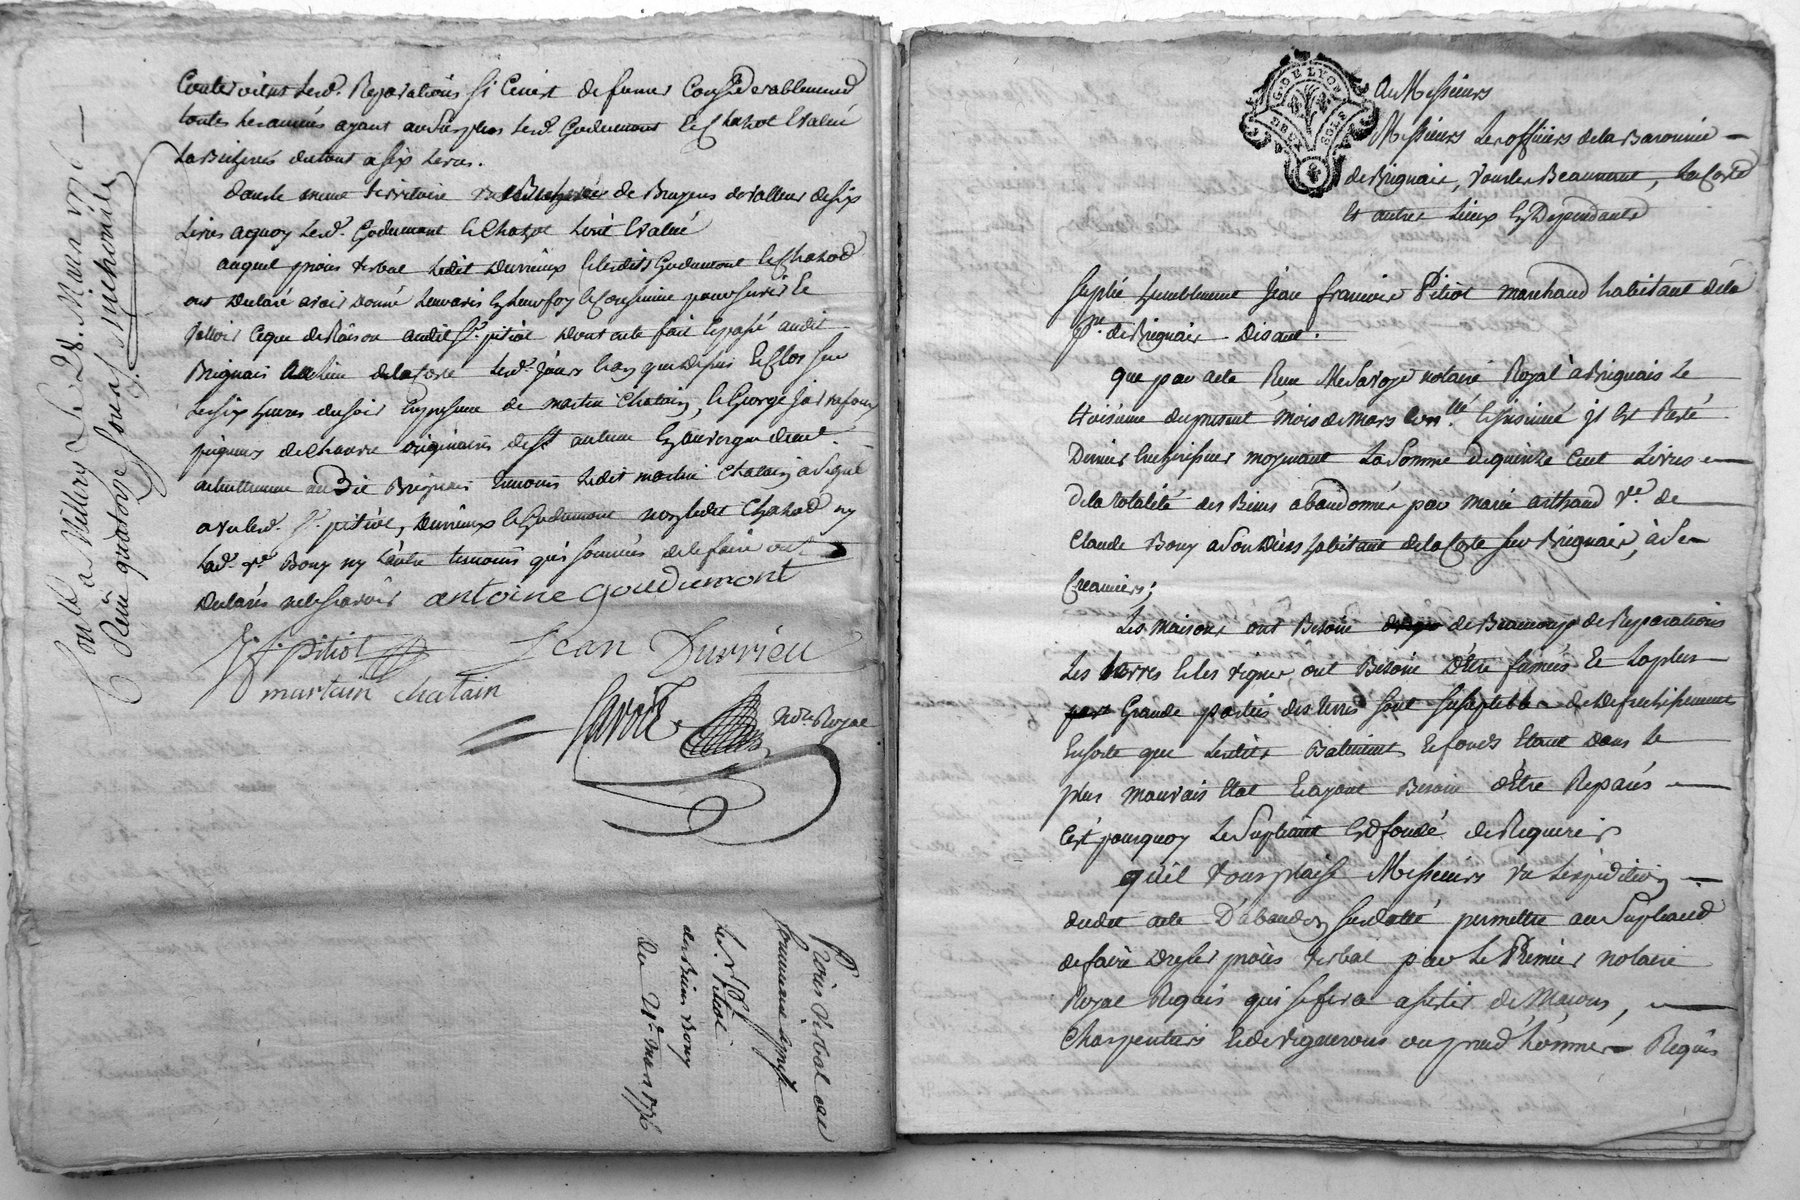 toutes les années ayant au surplus lesd. Godumont & Chahot Evalué
La Bucherie du tout a six livres.
dans le meme territoire de Bruyeres de valleur de six
Livres a quoy lesd. Godumont & Chahot l'ont Evalué
auquel procés verbal ledit Durrieux & lesdits Godumont & Chahod
ont Declaré avoir Donné leur avis en leur foy & Conscience pour servir &
valloir ce que de Raison audit Sr. pitiot Dont acte fait & passé audit
Brignais au lieu de la Coste lesd. jours & an que depuis & Clos sur
Les six heures du soir En presence de martin Chatain, & George
peigneurs de chanvre originaires de St antheme En auvergne
actuellement audit Brignais temoins ledit martin Chatain a signé
avec led. Sr. pitiot, Durrieux & Godumont non ledit Chahod ny
Lad. ve. Bony ny l'autre temoin qui sommés de le faire ont
Declarés ne le scavoir antoine goudumont
J. f. Pitiot Jean Durrieu
martain chatain
Notre Royal
Conllé a Millery Le 28. Mars 1776
Reçu quatorze sous
Procès Verbal au
Le Sr. Pitiot
des Biens Bony
Du 21e. mars 1776
G. DE LYON
DEUX SOLS
A Messieurs
Messieurs Les officiers de la Baronnie
de Brignais, Vourles Beaunant, La Coste
Et autres Lieux En Dependants
Suplie humblement Jean francois Pitiot marchand habitant de la
psse. de Brignais. Disant.
que par acte Reçu Me Savoye notaire Royal à Brignais Le
troisieme du present mois de Mars Conllé. & insinué il Est Resté
Dernier Encherisseur moyennant La Somme de quinze Cent Livres
de la totalité des Biens abandonnés par Marie arthaud Ve. de
Claude Bony a Son Décés habitante de la Coste sur Brignais, à Ses
Creanciers;
Les maisons ont Besoin de Beaucoup de Reparations
Les terres & les vignes ont Besoin d'être fumées & la plus
Grande parties des terres sont susceptible de Defrichissement
En sorte que lesdits Batiments & fonds Etant Dans le
plus mauvais Etat & ayant Besoin d'Etre Reparés
C'est pourquoy le Supliant Est fondé de Requerir
qu'il vous plaise Messieurs vu l'expedition
dudit acte D'abandon susdatté permettre au Supliand
de faire Dresser procés verbal par Le Premier notaire
Royal Requis qui se fera assister de Macons,
Charpentiers & de vignerons ou prud'hommes Requis